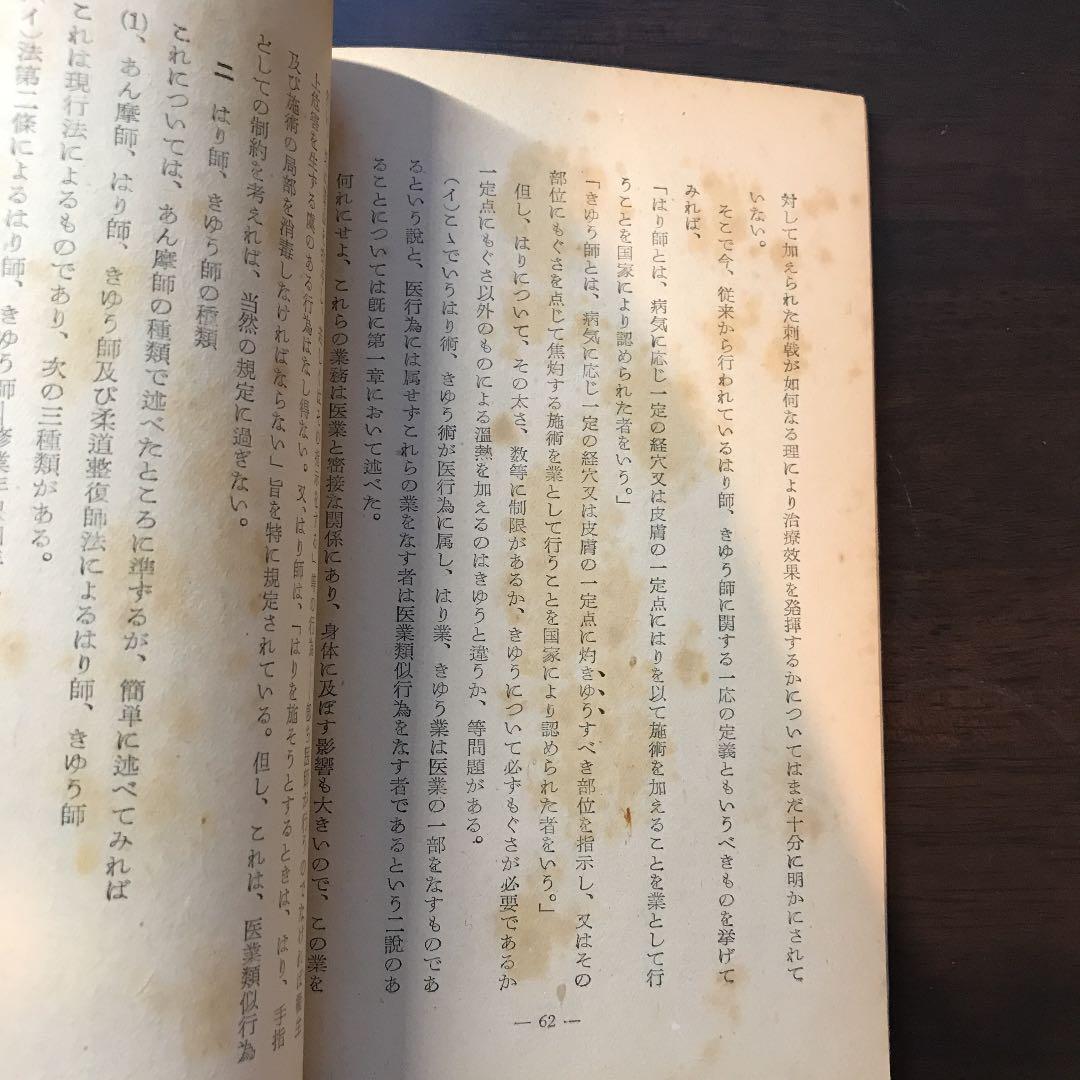 対して加えられた刺戟が如何なる理により治療効果を発揮するかについてはまだ十分に明かにされて
いない。
そこで今、従来から行われているはり師、きゆう師に関する一応の定義ともいうべきものを挙げて
みれば、
「はり師とは、病気に応じ一定の経穴又は皮膚の一定点にはりを以て施術を加えることを業として行
うことを国家により認められた者をいう。」
「きゆう師とは、病気に応じ一定の経穴又は皮膚の一定点に灼きゆうすべき部位を指示し、又はその
部位にもぐさを点じて焦灼する施術を業として行うことを国家により認められた者をいう。」
但し、はりについて、その太さ、数等に制限があるか、きゆうについて必ずもぐさが必要であるか
一定点にもぐさ以外のものによる温熱を加えるのはきゆうと違うか、等問題がある。
(イ)こゝでいうはり術、きゆう術が医行為に属し、はり業、きゆう業は医業の一部をなすものであ
るという説と、医行為には属せずこれらの業をなす者は医業類似行為をなす者であるという二説のあ
ることについては既に第一章において述べた。
何れにせよ、これらの業務は医業と密接な関係にあり、身体に及ぼす影響も大きいので、この業を
— 62 —
上危害を生ずる虞のある行為はなし得ない。又、はり師は、「はりを施そうとするときは、はり、手指
及び施術の局部を消毒しなければならない」旨を特に規定されている。但し、これは、医業類似行為
としての制約を考えれば、当然の規定に過ぎない。
二 はり師、きゆう師の種類
これについては、あん摩師の種類で述べたところに準ずるが、簡単に述べてみれば
(1)、あん摩師、はり師、きゆう師及び柔道整復師法によるはり師、きゆう師
これは現行法によるものであり、次の三種類がある。
イ)法第二條によるはり師、きゆう師